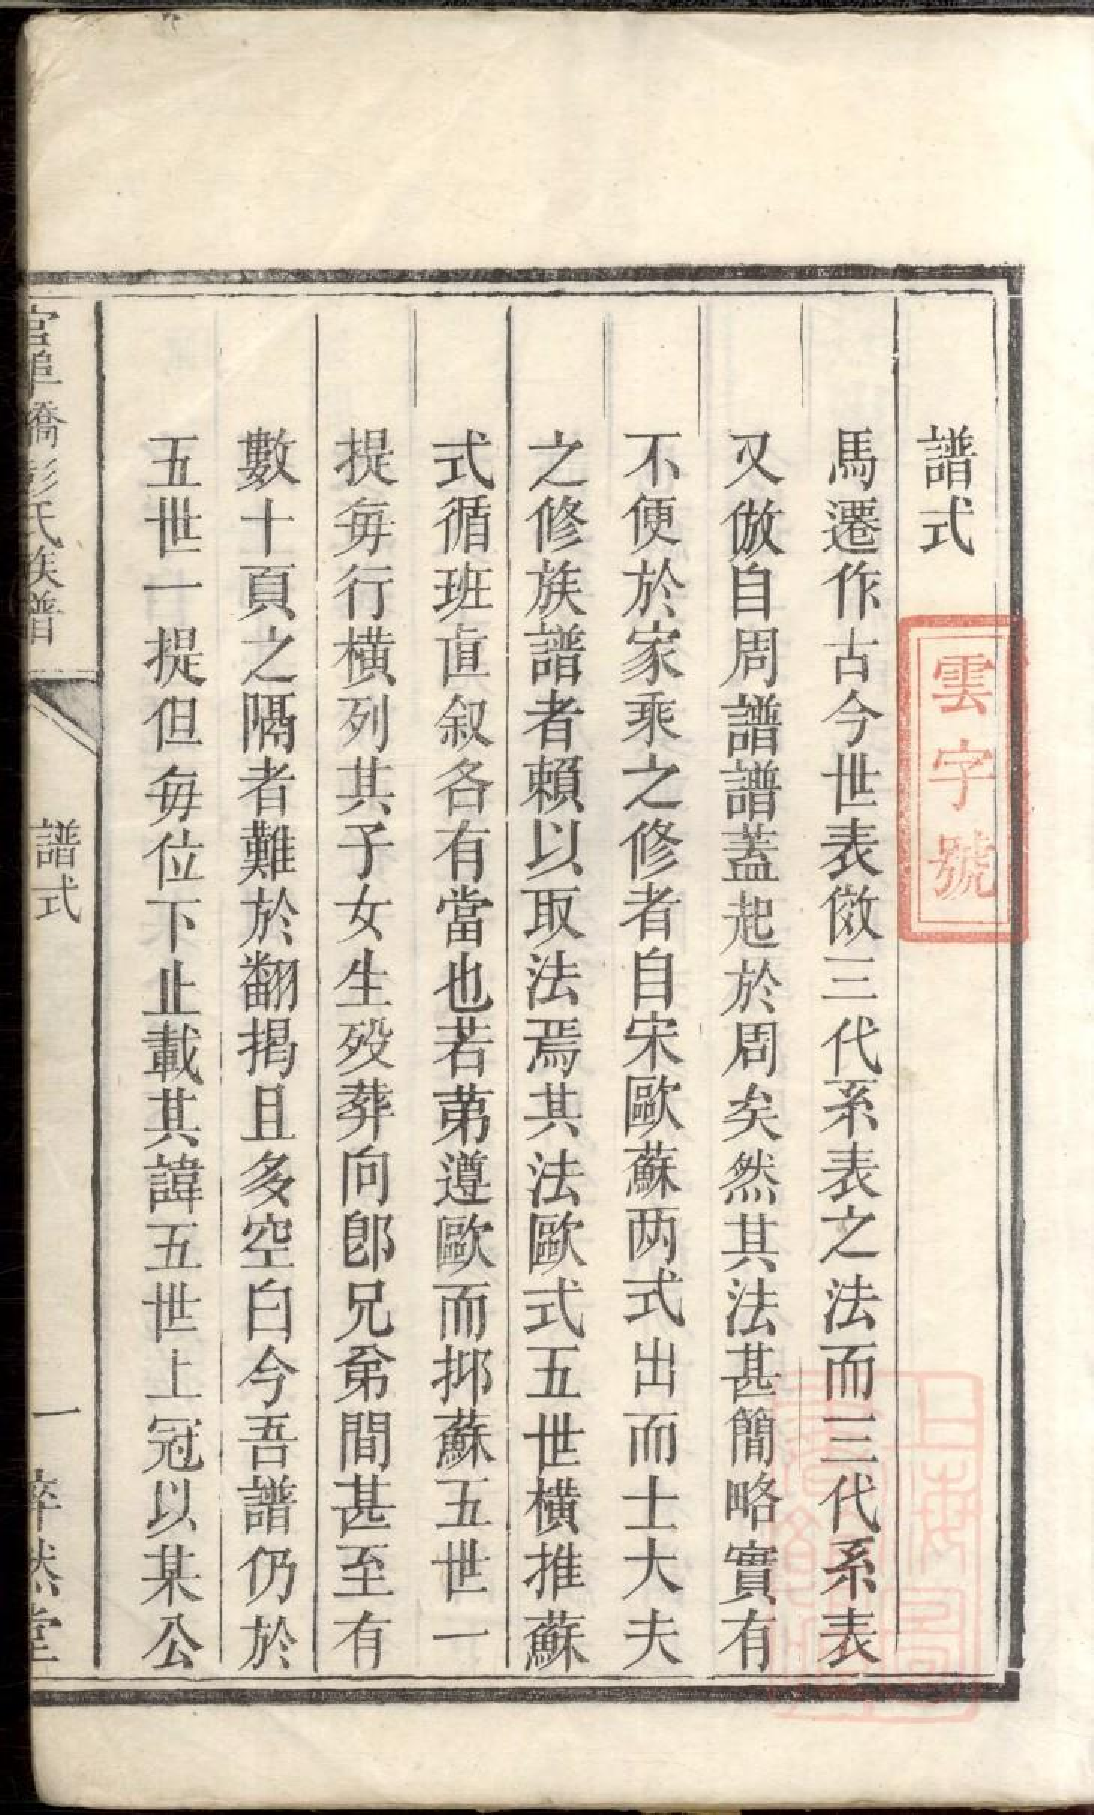 譜式
馬遷作古今世表倣三代系表之法而三代系表
又倣自周譜譜蓋起於周矣然其法甚簡略實有
不便於家乘之修者自宋歐蘇两式出而士大夫
之修族譜者賴以取法焉其法歐式五世橫推蘇
式循班直叙各有當也若苐遵歐而抑蘇五世一
提毎行橫列其子女生殁葬向卽兄弟間甚至有
數十頁之隔者難於翻揭且多空白今吾譜仍於
五世一提但毎位下止載其諱五世上冠以某公
官埠橋彭氏族譜
譜式
一
雲字號
上海圖書館藏